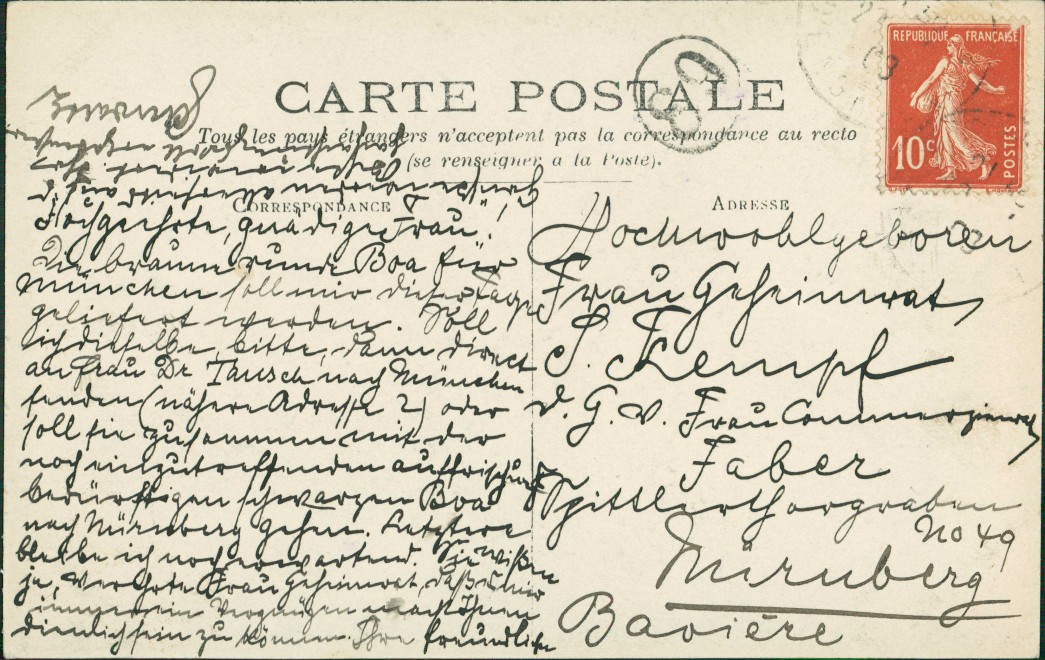 CARTE POSTALE
Tous les pays étrangers n'acceptent pas la correspondance au recto
(se renseigner à la Poste).
CORRESPONDANCE
ADRESSE
REPUBLIQUE FRANÇAISE
10c
POSTES
80
Hochgeehrte, gnädige Frau!
Die braune runde Boa für
München soll mir dieser Tage
geliefert werden. Soll
ich dieselbe, bitte, dann direct
an Frau Dr. Tausch nach München
senden (nähere Adresse?) oder
soll sie zusammen mit der
noch einzutreffenden auffrischungs
bedürftigen schwarzen Boa
nach Nürnberg gehen. Letztere
bleibe ich noch erwartend. Sie wißen
ja, verehrte Frau Geheimrat, daß es mir
immer ein Vergnügen macht Ihnen
dienlich sein zu können. Ihre freundlichen
Hochwohlgeboren
Frau Geheimrat
S. Kempf
d. G. v. Frau Commerzienrat
Faber
Spittlerthorgraben
No 49
Nürnberg
Bavière